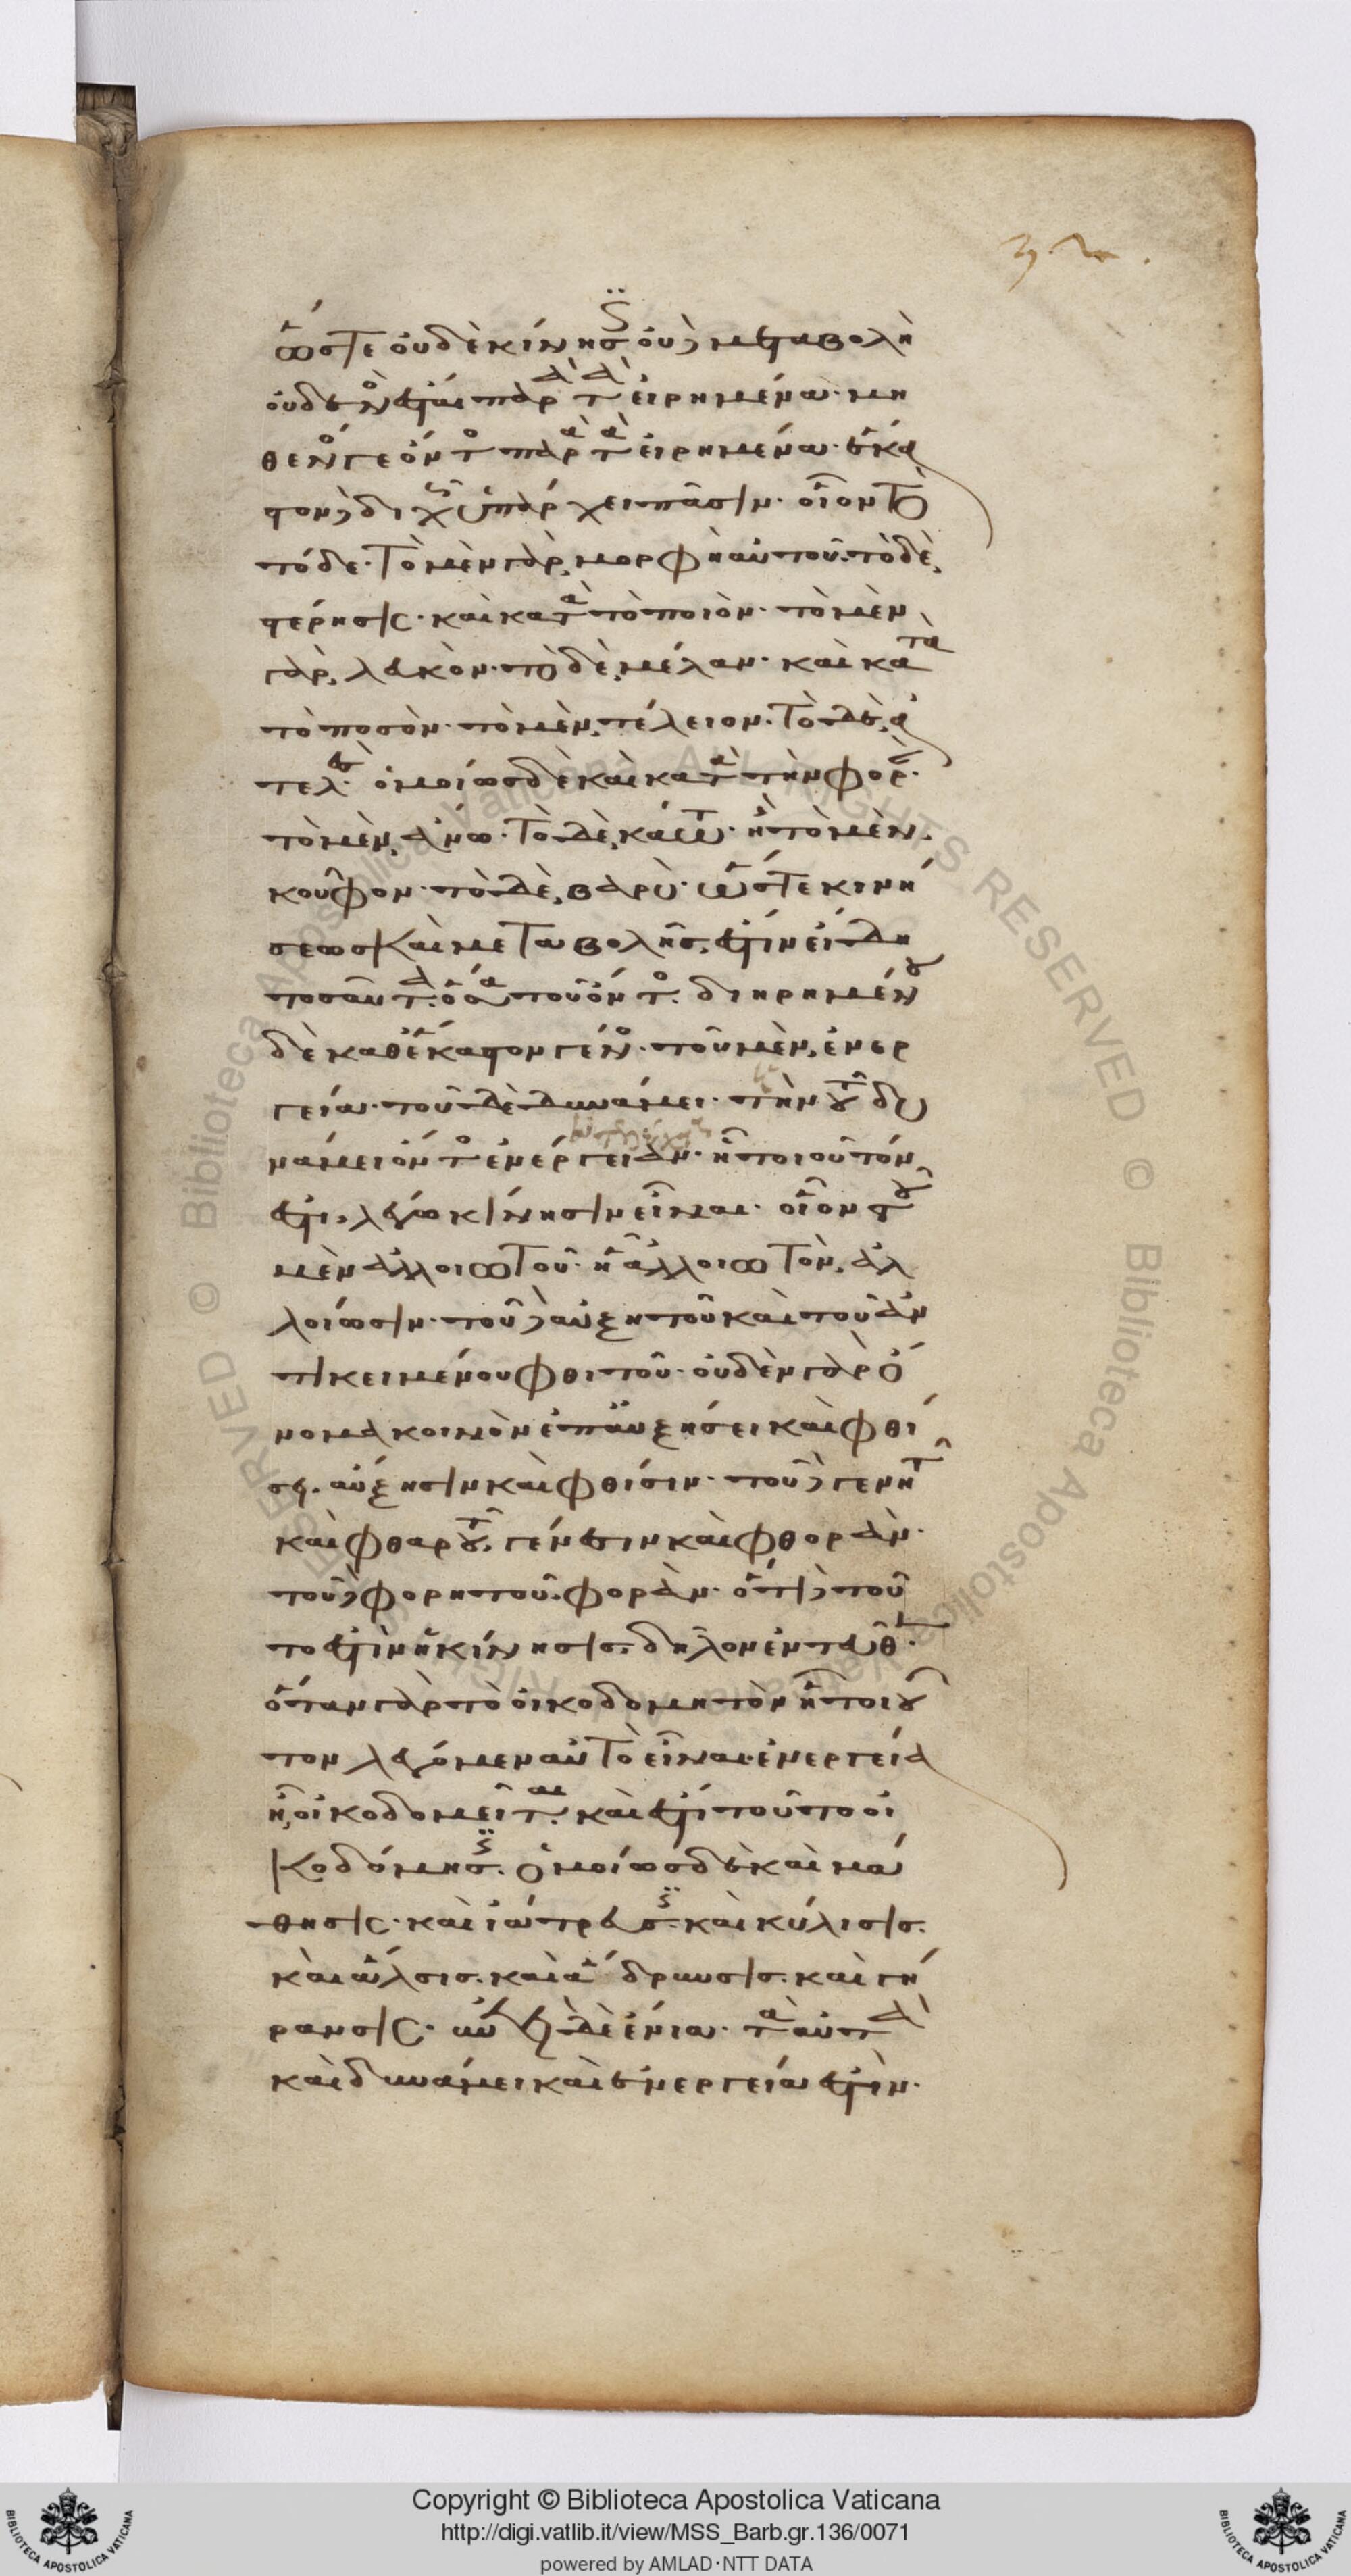 ὥστε οὐδὲ κίνησις οὐδὲ μεταβολὴ
οὐδενὸς ἔσται παρὰ τὰ εἰρημένα· μη
θενός γε ὄντος παρὰ τὰ εἰρημένα· ἕκα
στον δὲ διχῶς ὑπάρχει πᾶσιν· οἷον τὸ
τόδε· τὸ μὲν γὰρ, μορφὴ αὐτοῦ. τὸ δὲ,
στέρησις· καὶ κατὰ τὸ ποιόν· τὸ μὲν
γὰρ, λευκὸν· τὸ δὲ, μέλαν· καὶ κατὰ
τὸ ποσὸν· τὸ μὲν, τέλειον. τὸ δὲ, ἀ
τελές· ὁμοίως δὲ καὶ κατὰ τὴν φορὰν·
τὸ μὲν, ἄνω· τὸ δὲ, κάτω· ἢ τὸ μὲν,
κοῦφον· τὸ δὲ, βαρύ· ὥστε κινή
σεως καὶ μεταβολῆς, ἔστιν εἴδη
τοσαῦτα. ὅσα τοῦ ὄντος. διηρημένου
δὲ καθ' ἕκαστον γένος· τοῦ μὲν, ἐνερ
γεία· τοῦ δὲ δυνάμει· τὴν τοῦ δυ
νάμει ὄντος ἐνέργειαν· ᾗ τοιοῦτόν
ἐστι, λέγω κίνησιν εἶναι· οἷον τοῦ
μὲν ἀλλοιωτοῦ· ᾗ ἀλλοιωτὸν, ἀλ
λοίωσιν· τοῦ δὲ αὐξητοῦ καὶ τοῦ ἀν
τικειμένου φθιτοῦ· οὐδὲν γὰρ ὄ
νομα κοινὸν ἐπ' αὐξήσει καὶ φθί
σει. αὔξησιν καὶ φθίσιν· τοῦ δὲ γενητοῦ
καὶ φθαρτοῦ, γένεσιν καὶ φθοράν·
τοῦ δὲ φορητοῦ. φοράν· ὅτι δὲ τοῦ
το ἐστὶν ἡ κίνησις. δῆλον ἐντεῦθεν·
ὅταν γὰρ τὸ οἰκοδομητὸν ᾗ τοιοῦ
τον λέγομεν αὐτὸ εἶναι ἐνεργεία
ᾖ, οἰκοδομεῖται. καὶ ἔστι τοῦτο οἰ
κοδόμησις. ὁμοίως δὲ καὶ μά
θησις· καὶ ἰάτρευσις· καὶ κύλισις.
καὶ ἅλσις. καὶ ἅδρυνσις. καὶ γή
ρανσις· ἐπεὶ δὲ ἔνια· τὰ αὐτὰ
καὶ δυνάμει καὶ ἐνεργεία ἐστίν·
Copyright © Biblioteca Apostolica Vaticana
http://digi.vatlib.it/view/MSS_Barb.gr.136/0071
powered by AMLAD·NTT DATA